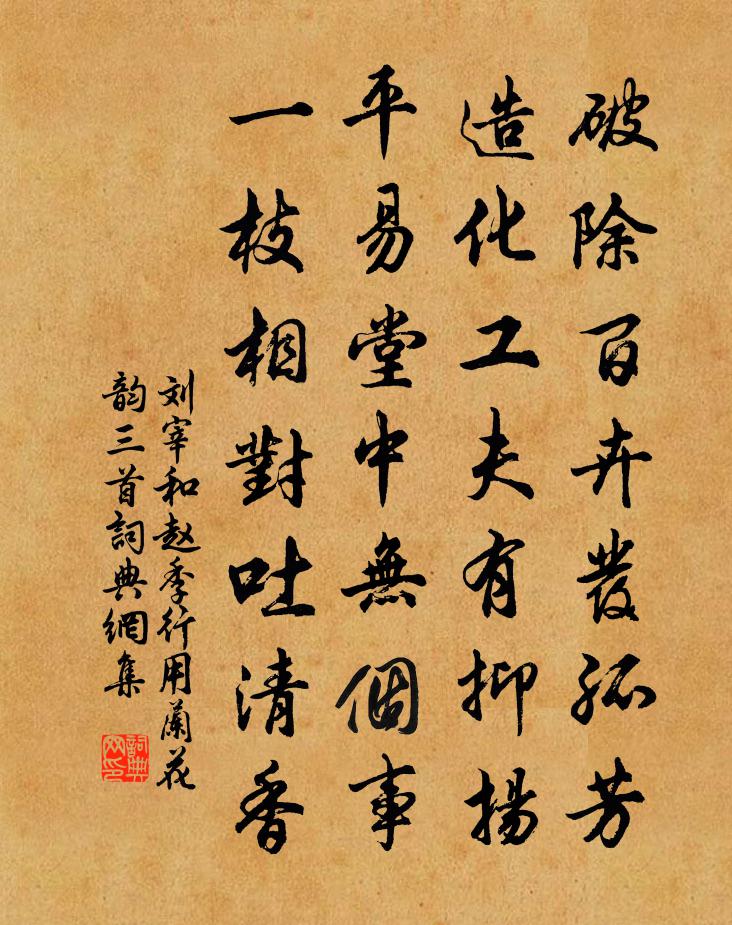 破除百卉發孤芳
造化工夫有抑揚
平易堂中無個事
一枝相對吐清香
刘宰和赵季行用蘭花
韵三首詞典網集
詞典网印